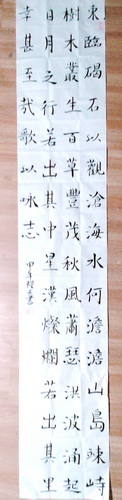 東臨碣石以觀滄海水何澹澹山島竦峙
樹木叢生百草豐茂秋風蕭瑟洪波涌起
日月之行若出其中星漢燦爛若出其里
幸甚至哉歌以咏志